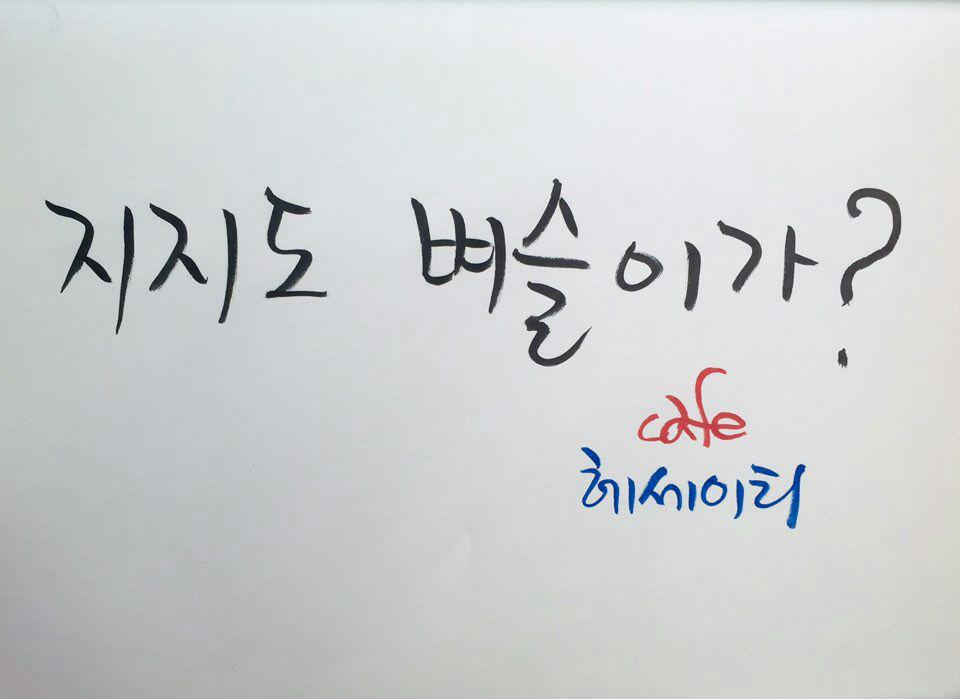 지지도 벼슬이가?
cafe
헤세이티